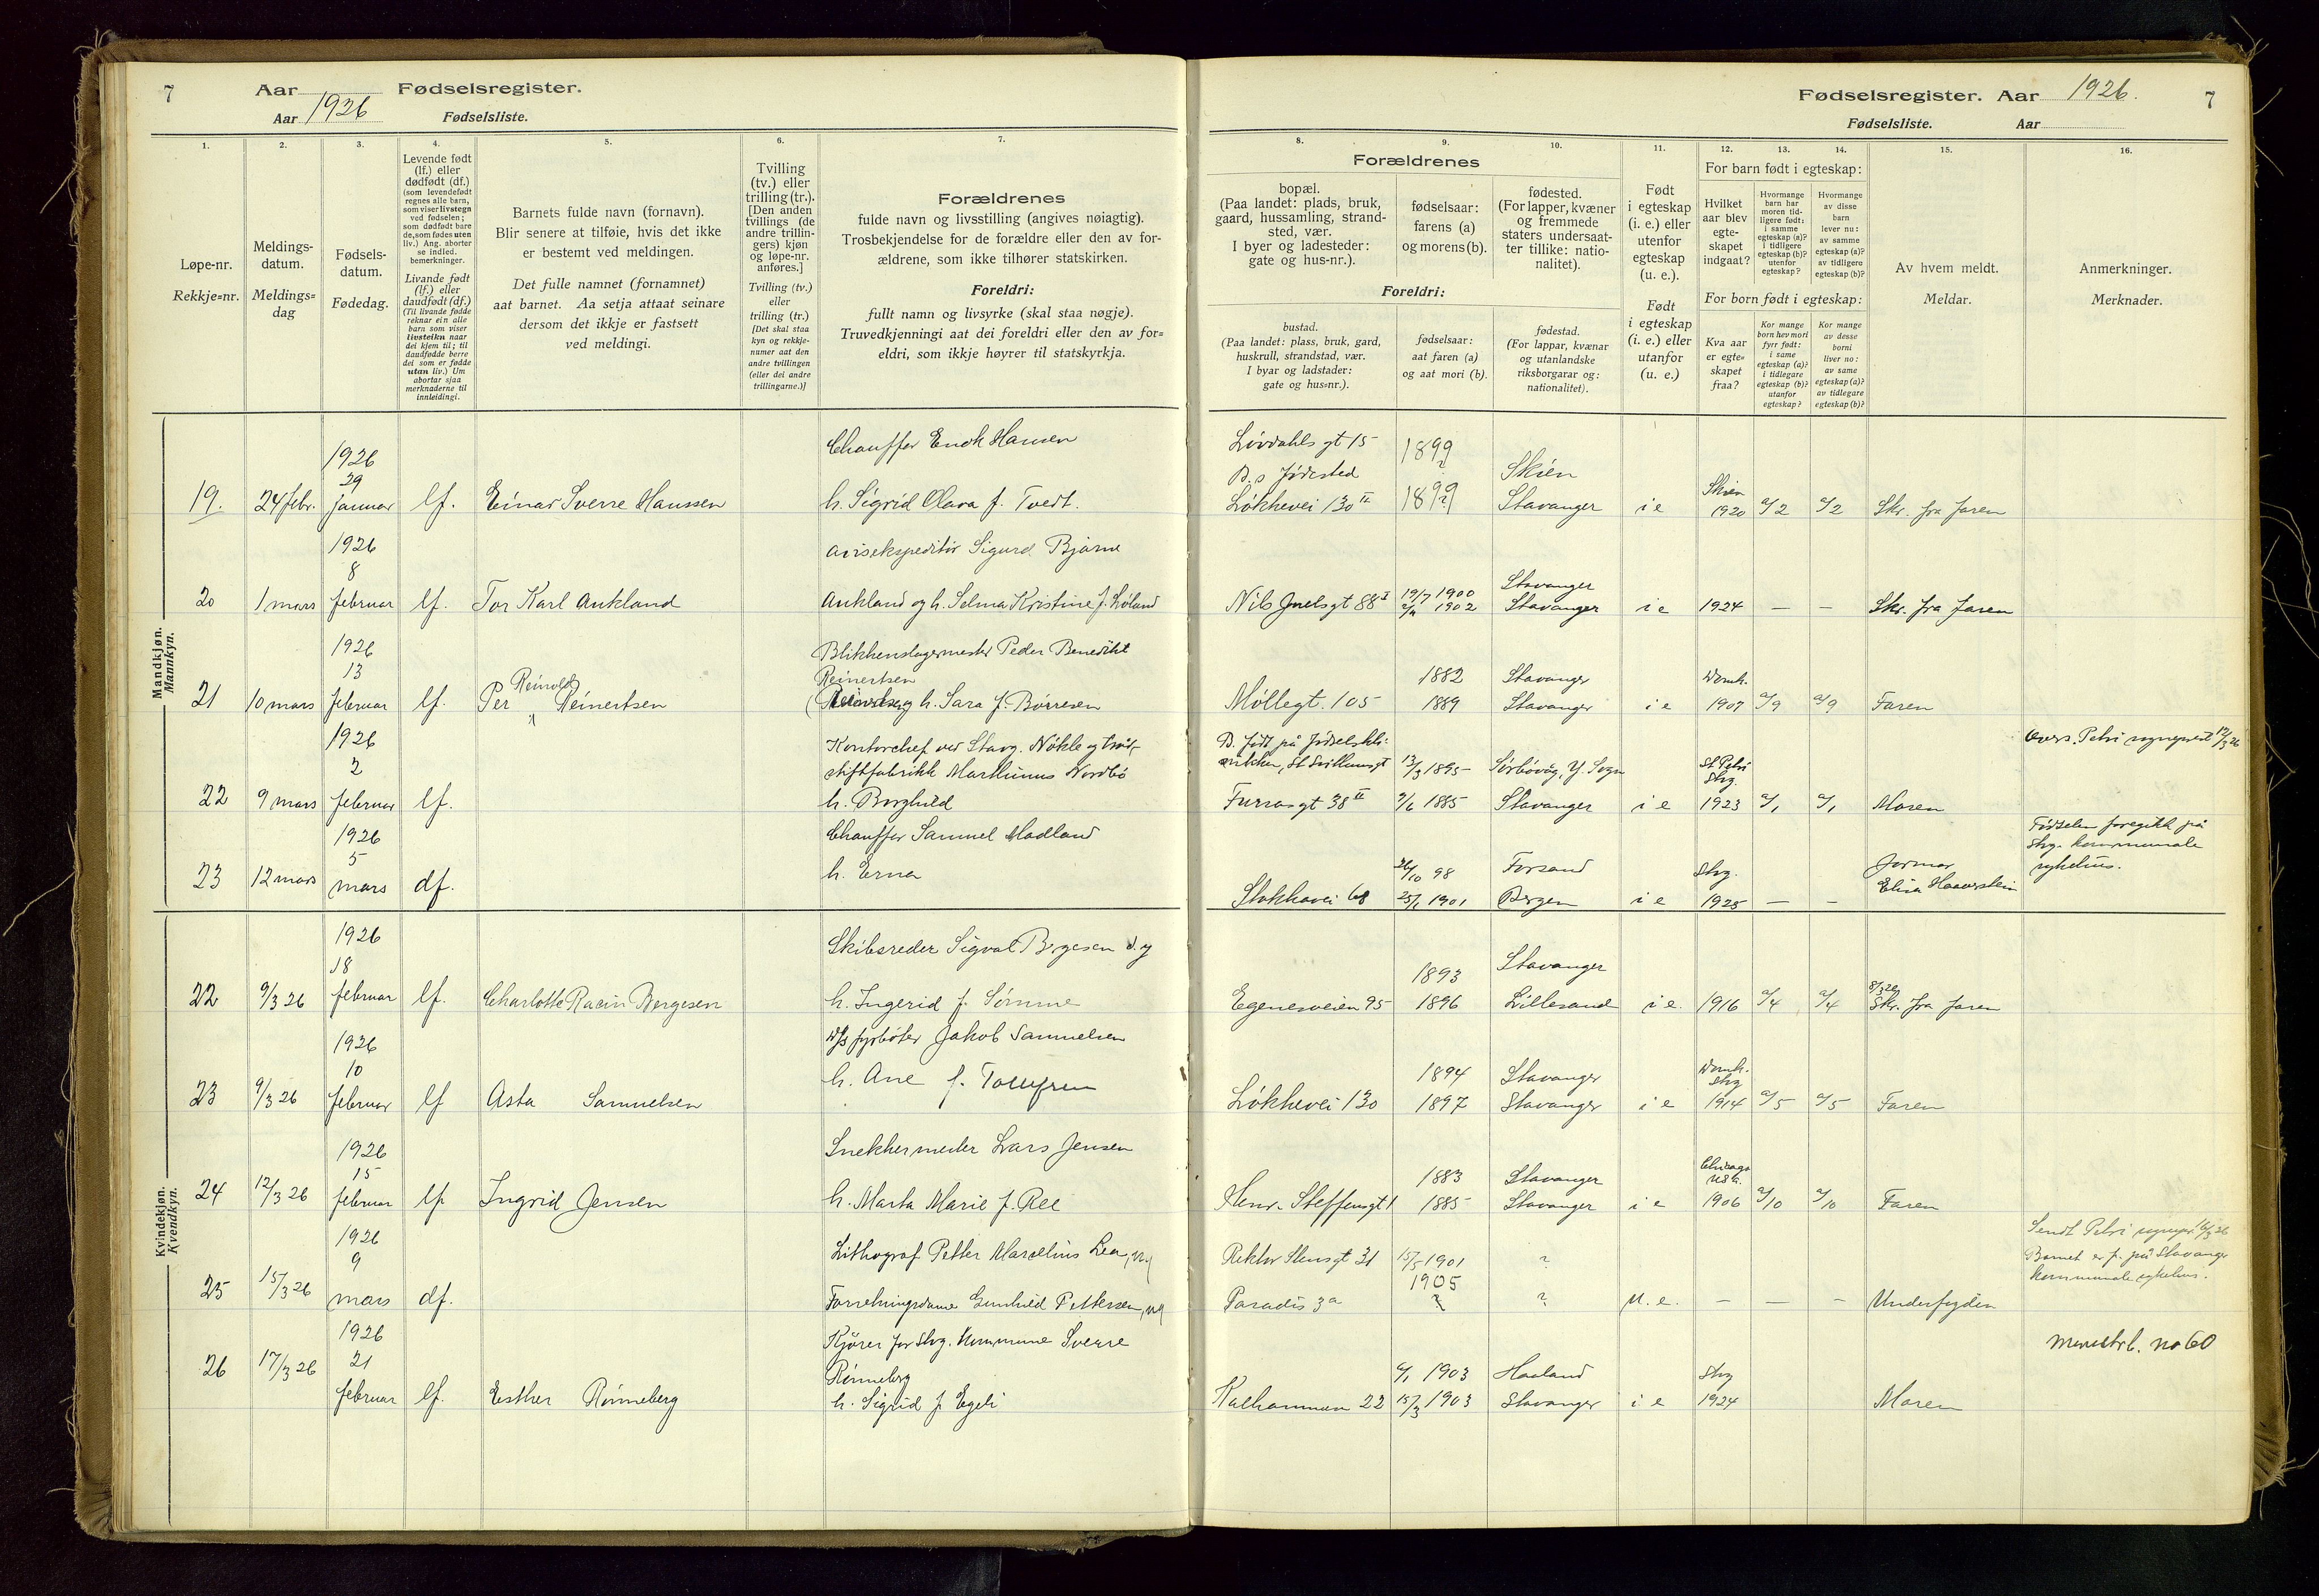 7 Aar 1926 Fødselsregister.
Aar Fødselsliste.
1. 2. 3. 4. 5. 6. 7.
Løpe-nr.
Rekkje=nr.
Meldings-
datum.
Meldings=
dag
Fødsels-
datum.
Fødedag.
Levende født
(lf.) eller
dødfødt (df.)
(som levendefødt
regnes alle barn,
som viser livstegn
ved fødselen;
som dødfødt bare
de, som fødes uten
liv.) Ang. aborter
se indled.
bemerkninger.
Livande født
(lf.) eller
daudfødt (df.)
(Til livande fødde
reknar ein alle
barn som viser
livsteikn naar
dei kjem til; til
daudfødde berre
dei som er fødde
utan liv.) Um
abortar sjaa
merknaderne til
innleidingi.
Barnets fulde navn (fornavn).
Blir senere at tilføie, hvis det ikke
er bestemt ved meldingen.
Det fulle namnet (fornamnet)
aat barnet. Aa setja attaat seinare
dersom det ikkje er fastsett
ved meldingi.
Tvilling
(tv.) eller
trilling (tr.).
[Den anden
tvillings (de
andre trillin-
gers) kjøn
og løpe-nr.
anføres.]
Tvilling (tv.)
eller
trilling (tr.)
[Det skal staa
kyn og rekkje-
numer aat den
andre tvillingen
(eller dei andre
trillingarne.)]
Forældrenes
fulde navn og livsstilling (angives nøiagtig).
Trosbekjendelse for de forældre eller den av for-
ældrene, som ikke tilhører statskirken.
Foreldri:
fullt namn og livsyrke (skal staa nøgje).
Truvedkjenningi aat dei foreldri eller den av for=
eldri, som ikkje høyrer til statskyrkja.
Fødselsregister. Aar 1926. 7
Fødselsliste. Aar
8. 9. 10. 11. 12. 13. 14. 15. 16.
Forældrenes
bopæl.
(Paa landet: plads, bruk,
gaard, hussamling, strand-
sted, vær.
I byer og ladesteder:
gate og hus-nr.).
fødselsaar:
farens (a)
og morens (b).
fødested.
(For lapper, kvæner
og fremmede
staters undersaat-
ter tillike: natio-
nalitet).
Foreldri:
bustad.
(Paa landet: plass, bruk, gard,
huskrull, strandstad, vær.
I byar og ladstader:
gate og hus=nr.).
fødselsaar:
aat faren (a)
og aat mori (b).
fødestad.
(For lappar, kvænar
og utanlandske
riksborgarar og:
nationalitet).
Født
i egteskap
(i. e.) eller
utenfor
egteskap
(u. e.).
Født
i egteskap
(i. e.) eller
utanfor
egteskap
(u. e.)
For barn født i egteskap:
Hvilket
aar blev
egte-
skapet
indgaat?
Hvormange
barn har
moren tid-
ligere født:
i samme
egteskap (a)?
i tidligere
egteskap (b)?
utenfor
egteskap?
Hvormange
av disse
barn
lever nu:
av samme
egteskap (a)?
av tidligere
egteskap (b)?
For born født i egteskap:
Kva aar
er egte=
skapet
fraa?
Kor mange
born hev mori
fyrr født:
i same
egteskap (a)?
i tidlegare
egteskap (b)?
utanfor
egteskap?
Kor mange
av desse
borni
liver no:
av same
egteskap (a)?
av tidlegare
egteskap (b)?
Av hvem meldt.
Meldar.
Anmerkninger.
Merknader.
Mandkjøn.
Mannkyn.
1926 Chauffør Hansen Løvdahls gt 15 1899
29 B.s fødested ? Skien
19. 24 febr. januar lf. Einar Sverre Hanssen h. Sigrid Olava f. Tvedt. Løkkevei 130 II 1899 ? Stavanger i e Skien 1920 a/2 a/2 Skr. fra faren
1926 avisekspeditør Sigurd Bjarne
8 Stavanger
20 1 mars februar lf. Tor Karl Aukland Aukland og h. Selma Kristine f. Løland Nils Juelsgt 88 I 19/7 1900 1902 Stavanger i e 1924 — — Skr. fra faren
1926 Blikkenslagermester Peder Benedikt
13 Reinertsen 1882 Stavanger
21 10 mars februar lf. Per Reinold Reinertsen og h. Sara f. Børresen Møllegt. 105 1889 Stavanger i e 1907 a/9 a/9 Faren
1926 Kontorchef ved Stavg. Nøkle og traad- B. født på fødselskli- Overs. Petri sogneprest 12/3 26
2 stiftfabrikk Marthinus Nordbø 13/3 1895 Sørbøvåg, Y. Sogn St Petri Stvg.
22 9 mars februar lf. h. Borghild Furrasgt 38 II 9/6 1885 Stavanger i e 1923 a/1 a/1 Moren
1926 Chauffør Samuel Madland Fødselen foregikk på
5 h. Erna 26/10 98 Forsand Stvg. Jormor Stvg. kommunale
23 12 mars mars df. Stokkavei 68 25/1 1901 Bergen i e 1925 — — Elisa sykehus.
Kvindekjøn.
Kvendkyn.
1926 Skibsreder Sigval Bergesen d. y
18 1893 Stavanger
22 9/3 26 februar lf. Charlotte Racin Bergesen h. Ingerid f. Sømme Egenesveien 95 1896 Lillesand i e. 1916 a/4 a/4 8/3 26 Skr. fra faren
1926 D/s fyrbøter Jakob Samuelsen
10 h. Ane f. Tollefsen 1894 Stavanger Stvg
23 9/3 26 februar lf Asta Samuelsen Løkkevei 130 1897 Stavanger i e 1914 a/5 a/5 Faren
1926 Snekkermester Lars Jensen
15 1883 Stavanger Chicago
24 12/3 26 februar lf. Ingrid Jensen h. Marta Marie f. Ree Henr. Steffensgt 1 1885 Stavanger i e 1906 a/10 a/10 Faren
1926 Lithograf Petter Marselius Lea, Rektor Stensgt 31 15/5 1901 ? Sendt Petri sognepr. 16/3 26
9 1905 Barnet er f. på Stavanger
25 15/3 26 mars df. Forretningsdame Gunhild Pettersen, Paradis 3a ? ? u. e. — — — Underfogden kommunale sykehus.
1926 Kjører for Stvg. kommune Sverre
21 Rønneberg 1903 Haaland Stvg no 60
26 17/3 26 februar lf. Esther Rønneberg h. Sigrid f. Egeli Kalhammeren 22 15/3 1903 Stavanger i e 1924 Moren